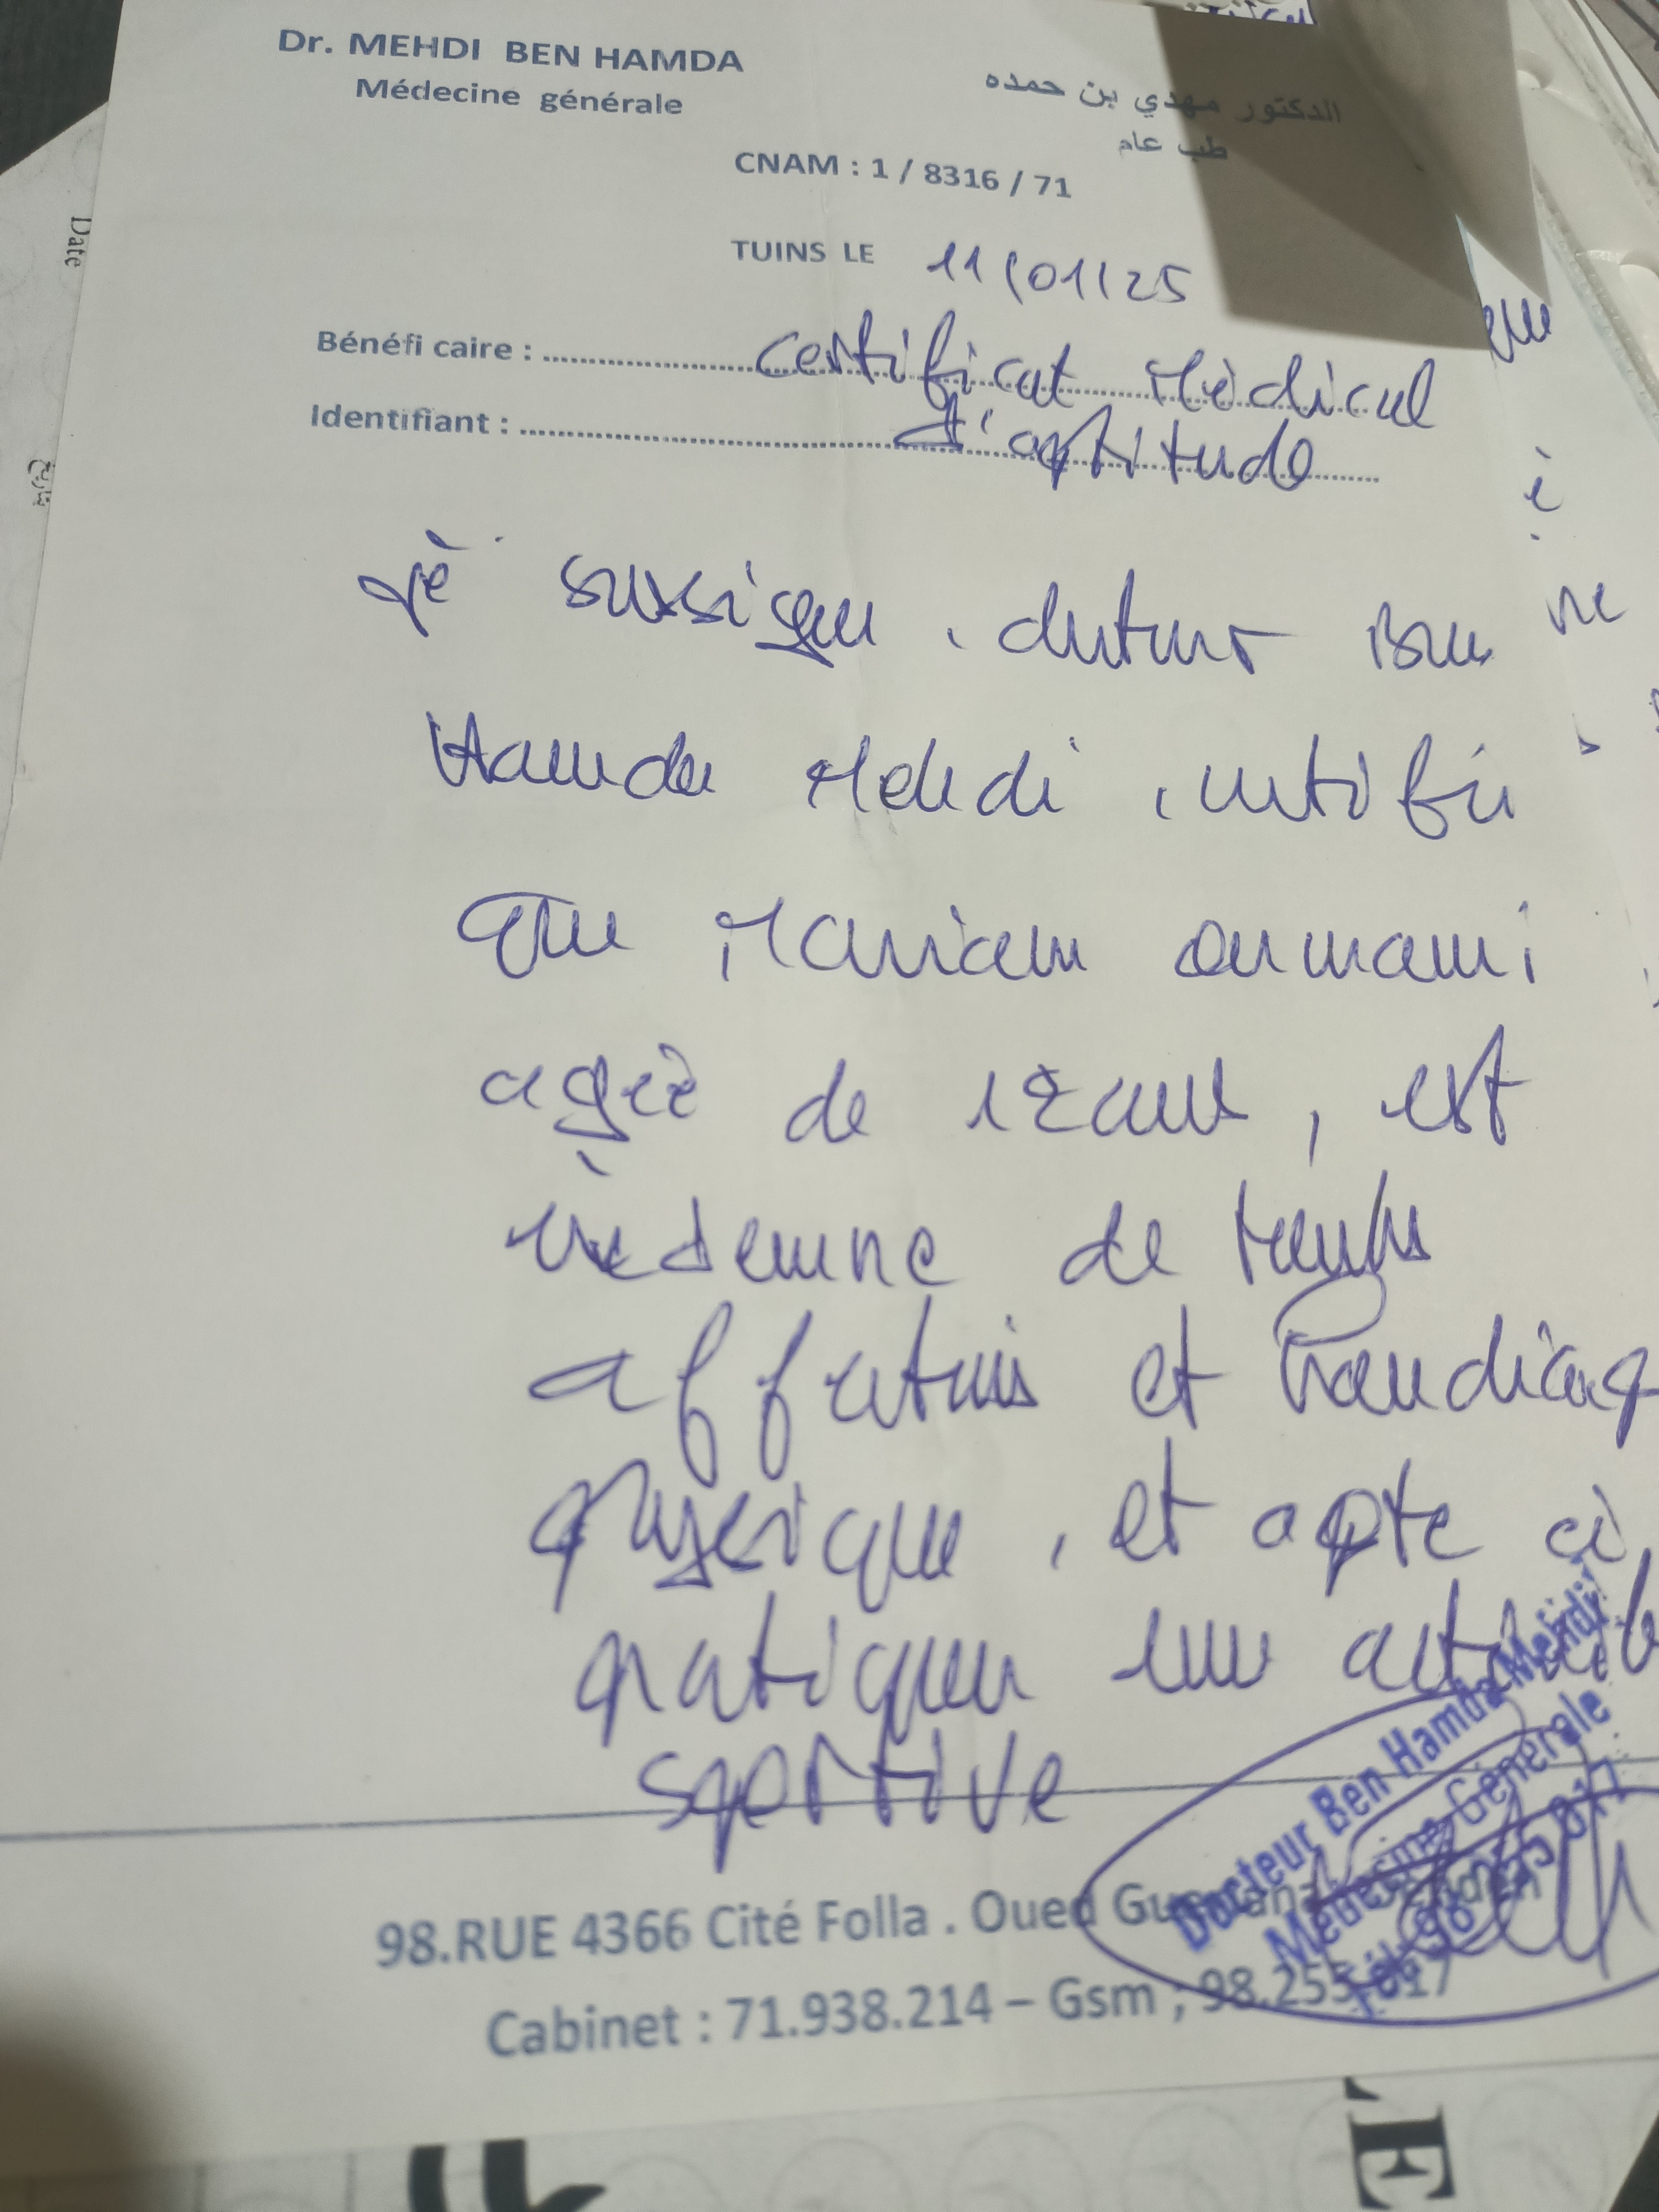 Dr. MEHDI BEN HAMDA
Médecine générale
الدكتور مهدي بن حمده
طب عام
CNAM : 1 / 8316 / 71
TUINS LE 11/01/25
Bénéfi caire : certificat Médical
Identifiant : d'aptitude
je sussigne, docteur Ben
Hamda Mehdi, certifie
que Mariem
agée de 12 ans, est
indemne de toutes
affections et handicap
physique, et apte à
pratiquer une activité
sportive
Docteur Ben Hamda Mehdi
Médecine Générale
98.RUE 4366 Cité Folla . Oued
Cabinet : 71.938.214 – Gsm ; 98.255.017
Date
تاريخ